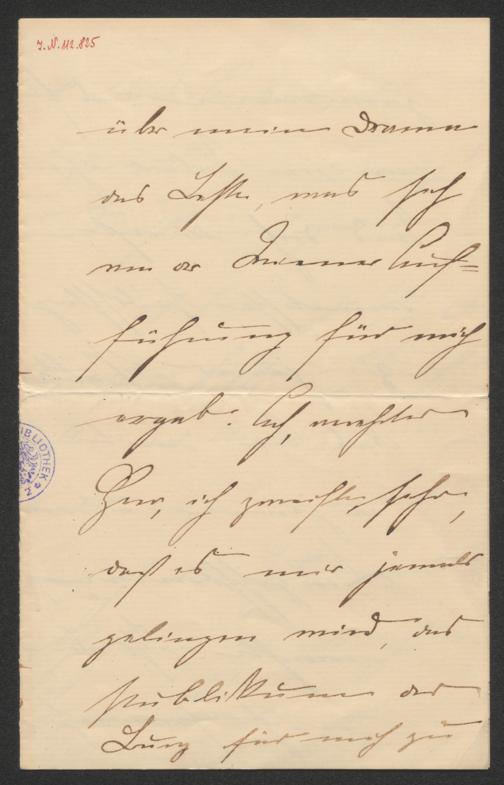 J. N. 112.825
über mein Drama
das Beste, was sich
von der Wiener Auf=
führung für mich
ergab. Ach, verehrter
Herr, ich zweifle sehr,
daß es mir jemals
gelingen wird, das
Publikum der
Burg für mich zu
BIBLIOTHEK